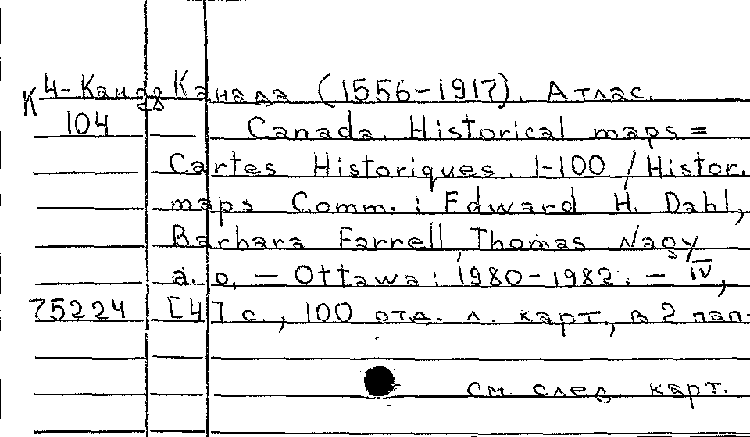 К 4-Канад Канада (1556-1917). Атлас.
104 Canada. Historical maps =
Cartes Historiques. 1-100 / Histor.
maps Comm.: Edward H. Dahl,
Barbara Farrell, Thomas Nagy
a. o. - Ottawa: 1980-1982. - IV,
75224 [4] с., 100 отд. л. карт., в 2 пап.
см. след. карт.